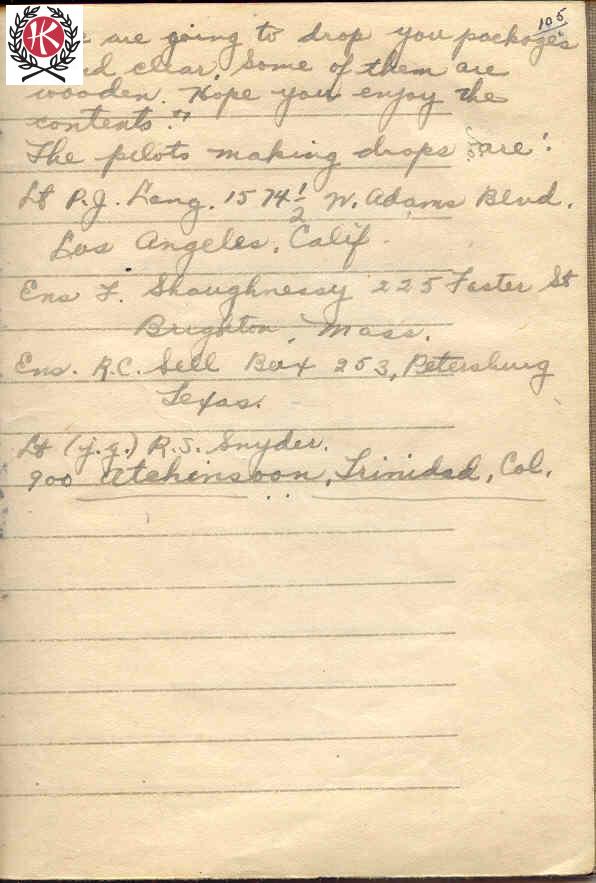 105
are going to drop you packages
clear. Some of them are
wooden. Hope you enjoy the
contents."
The pilots making drops are:
Lt P.J. Lang. 1574½ W. Adams Blvd.
Los Angeles, Calif.
Ens F. Shaughnessy 225 Faster St
Brighton, Mass.
Ens. R.C. Sell Box 253, Petersburg
Texas.
Lt (j.g.) R.S. Snyder.
900 Atchinsoon, Trinidad, Col.